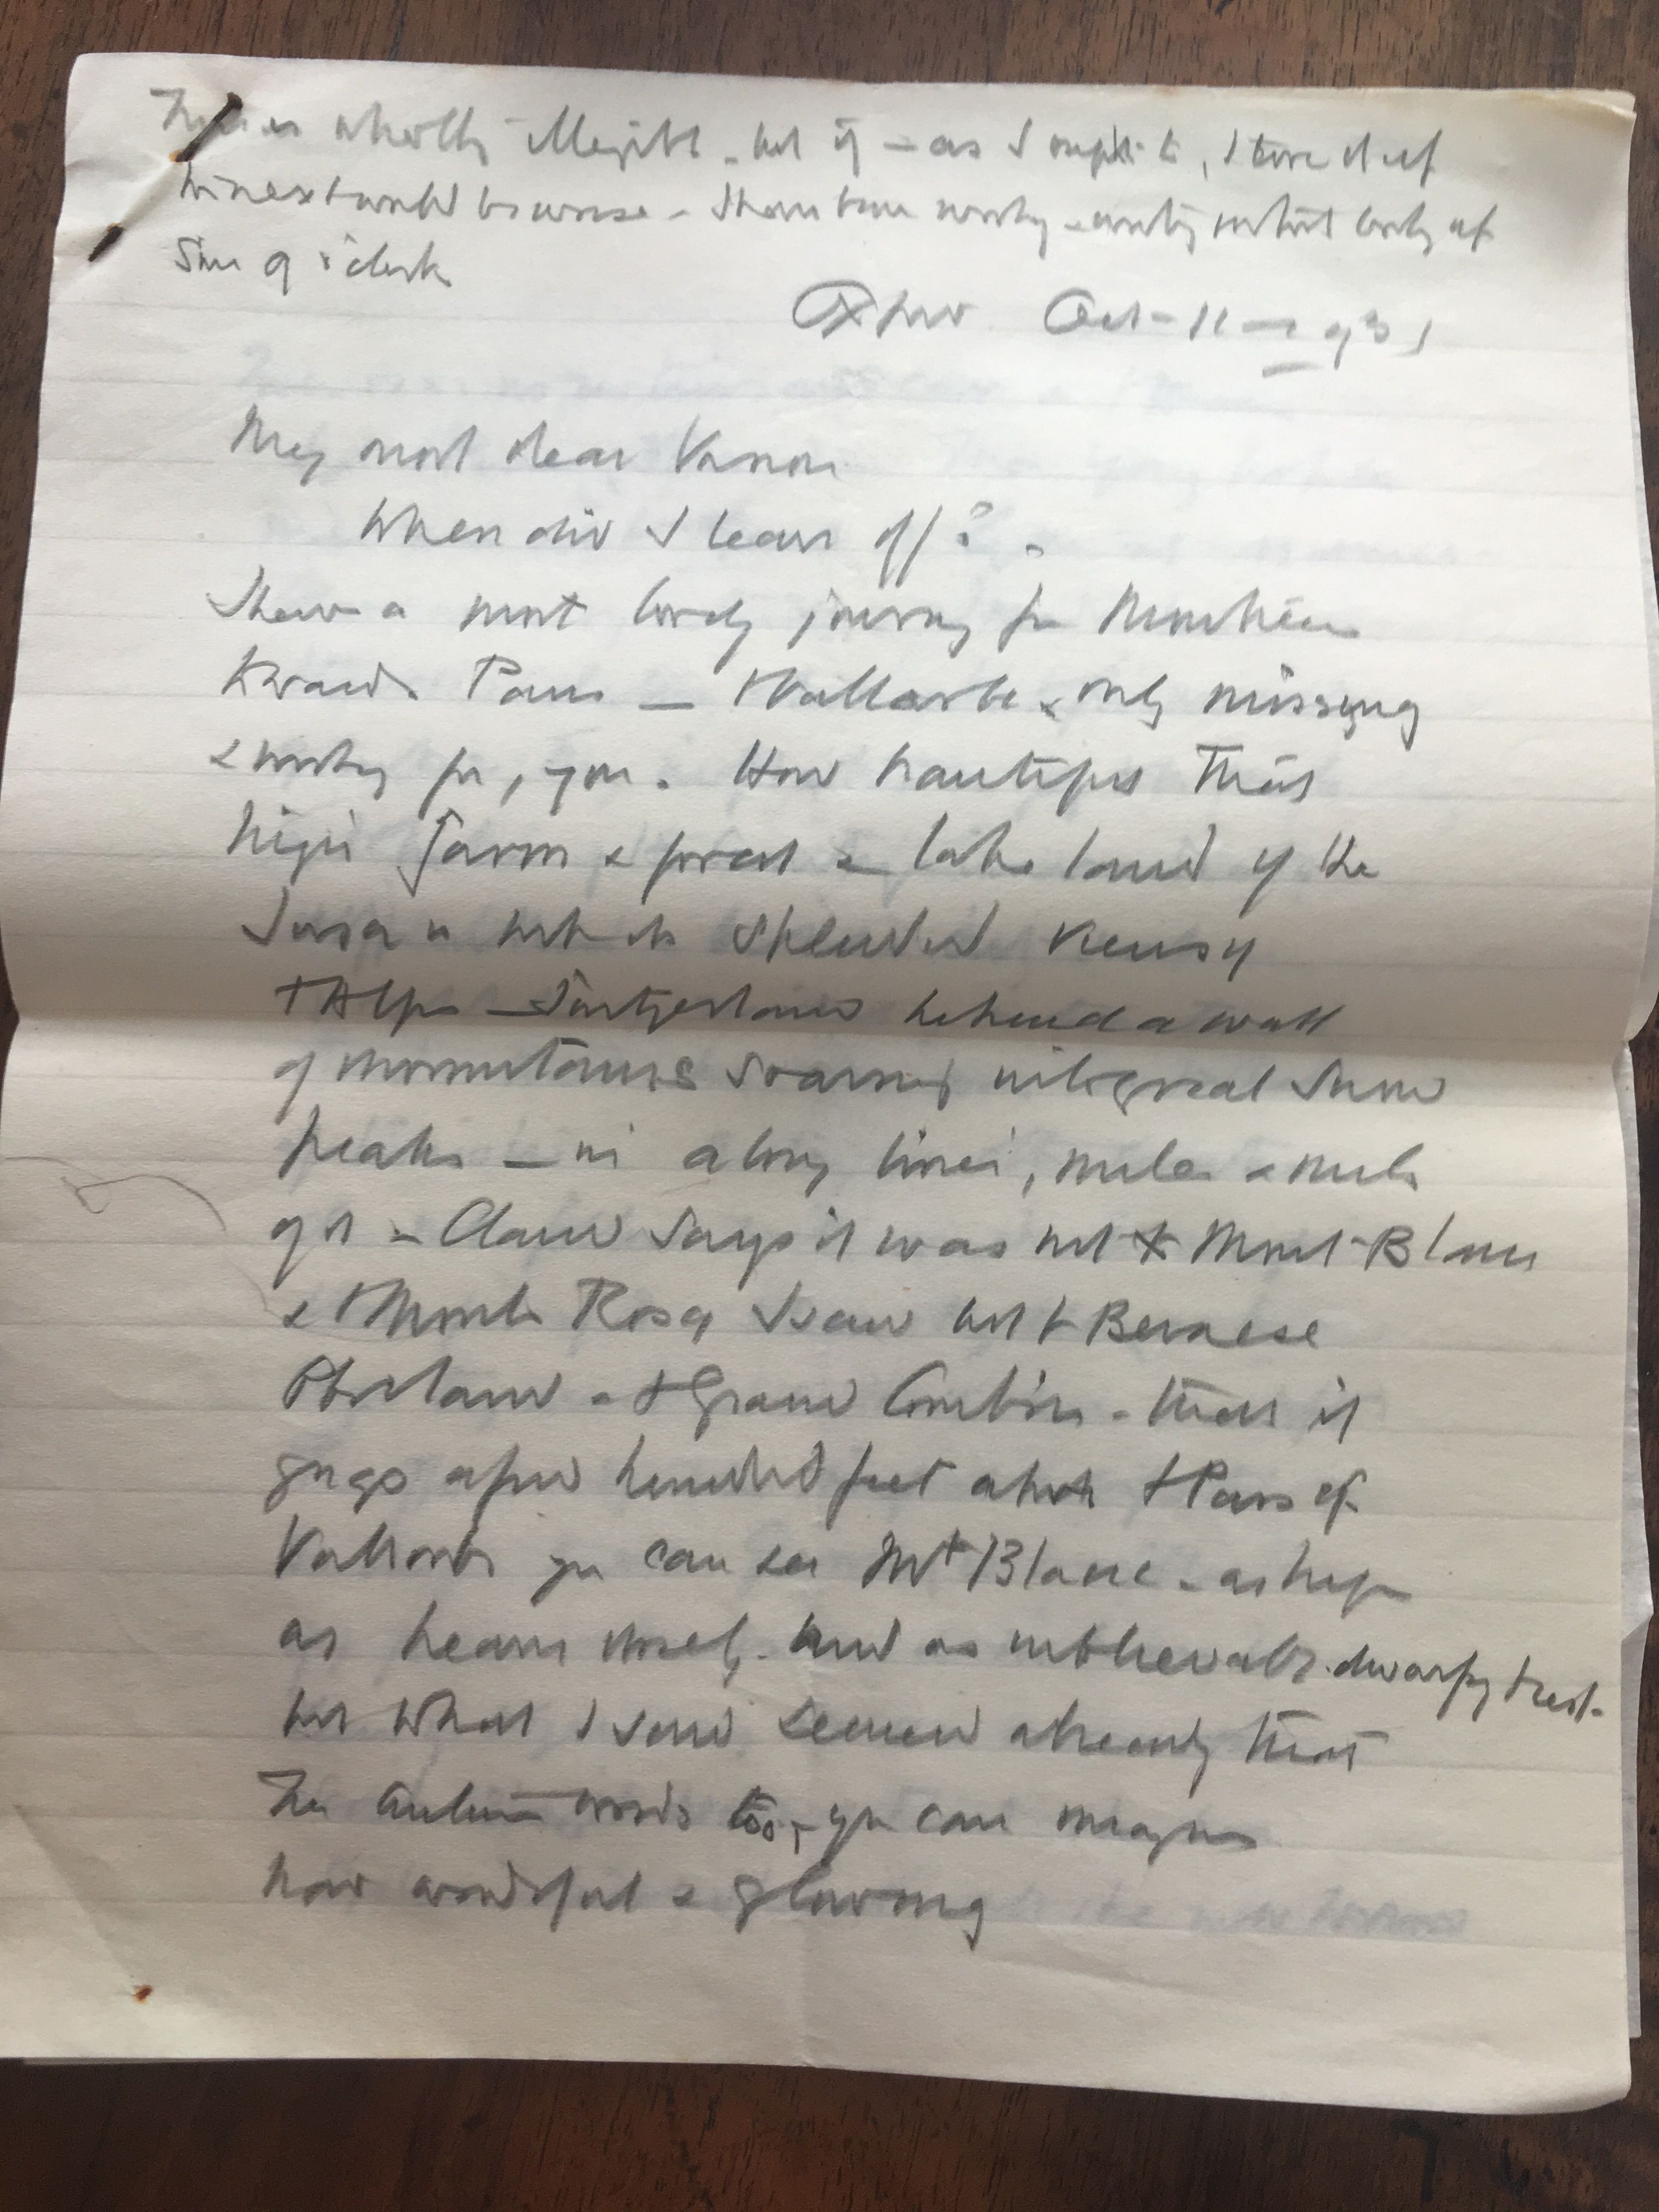 This is wholly illegible - but if - as I ought to, I tore it up
the next would be worse - I have been writing & writing
Since 9 o'clock
Oxford Oct - 11 - 1931
My most dear Vernon
When did I leave off?
I have a most lovely journey from
towards Paris - Vallorbe & only missing
& wanting for, you. How beautiful that
high farm & forest & lake land of the
Jura is with its splendid views of
t Alps - Switzerland behind a wall
of mountains soaring into great snow
peaks - in a long line, miles & miles
of it - says it was not t Mont Blanc
& t Monte Rosa I saw but t Bernese
Oberland & t Grand Combin - that if
you go a few hundred feet above t Pass of
Vallorbe you can see Mt Blanc - as huge
as heaven itself - and as unbelievable - dwarfing t rest -
but what I saw seemed already that
The autumn woods too, - you can imagine
how wonderful & glowing